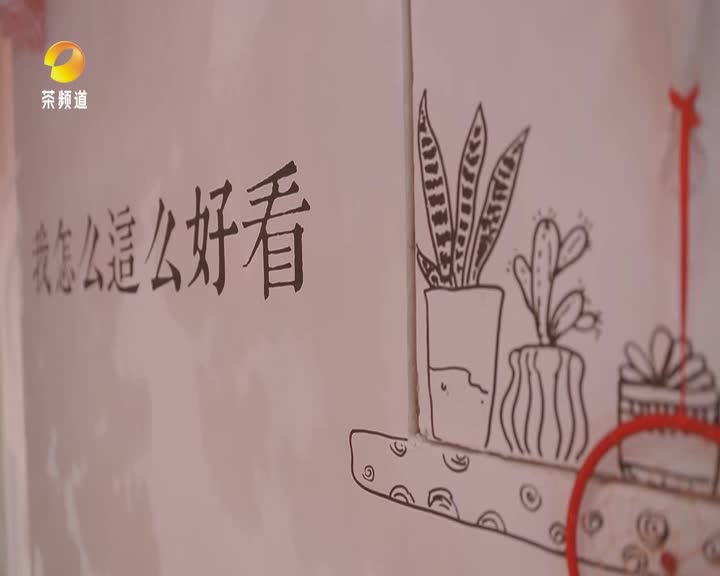 茶频道
我怎么這么好看